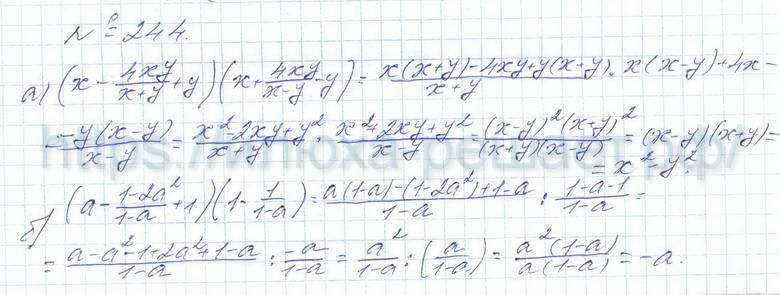 № 244.
а) (x - 4xy/(x+y) + y)(x + 4xy/(x-y) - y) = (x(x+y) - 4xy + y(x+y))/(x+y) · x(x-y) + 4x -
= -y(x-y)/(x-y) = (x² - 2xy + y²)/(x+y) · (x² + 2xy + y²)/(x-y) = (x-y)²(x+y)²/((x+y)(x-y)) = (x-y)(x+y) =
= x² - y².
б) (a - (1-2a²)/(1-a) + 1)(1 - 1/(1-a)) = (a(1-a) - (1-2a²) + 1-a)/(1-a) : (1-a-1)/(1-a) =
= (a - a² - 1 + 2a² + 1 - a)/(1-a) : -a/(1-a) = a²/(1-a) : (a/(1-a)) = a²(1-a)/(a(1-a)) = -a.